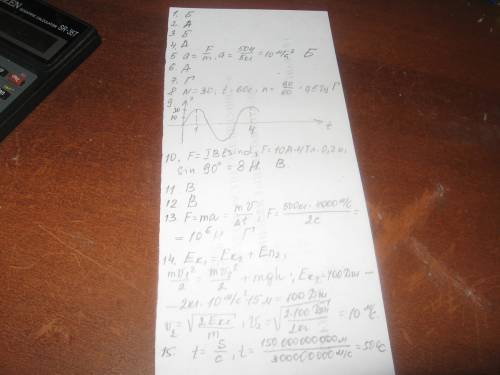 1. Б
2. А
3. Б
4. А
5 a = F/m, a = 50Н/5кг = 10 м/с² Б
6. А
7. Г
8 N = 30, t = 60с, n = 30/60 = 0,5 Гц Г
9
30
10
1 4 t
10. F = IBℓ sinα, F = 10А · 4Тл · 0,2м,
sin 90° = 8 Н. В.
11 В
12 В
13 F = ma = mv/Δt, F = 500кг · 4000 м/с / 2с =
= 10⁶ Н Г
14. Eк₁ = Eк₂ + Eп₂,
mv₁²/2 = mv₂²/2 + mgh; Eк₂ = 400 Дж −
− 2кг · 10 м/с² · 15 м = 100 Дж
v₂ = √(2Eк₂/m), v₂ = √(2·100 Дж/2кг) = 10 м/с.
15. t = S/c, t = 150000000000м / 300000000 м/с = 500с